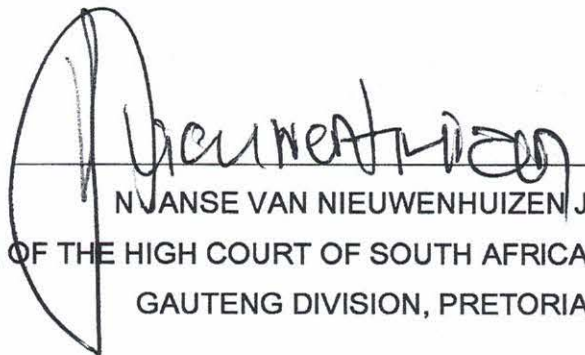 Nieuwenhuizen
N JANSE VAN NIEUWENHUIZEN J
OF THE HIGH COURT OF SOUTH AFRICA
GAUTENG DIVISION, PRETORIA